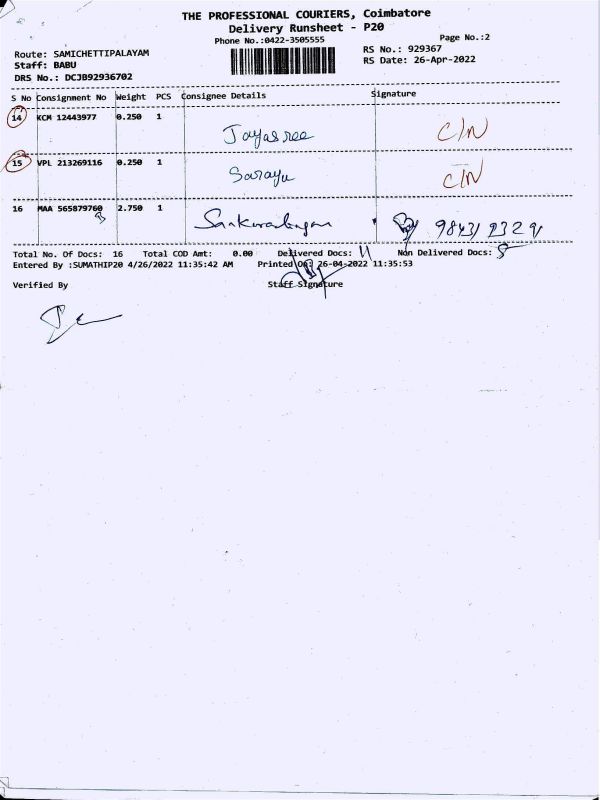 THE PROFESSIONAL COURIERS, Coimbatore
Delivery Runsheet - P20
Phone No.:0422-3505555
Page No.:2
Route: SAMICHETTIPALAYAM
RS No.: 929367
Staff: BABU
RS Date: 26-Apr-2022
DRS No.: DCJB92936702
S No Consignment No Weight PCS Consignee Details Signature
14 KCM 12443977 0.250 1
Jayasree C/N
15 VPL 213269116 0.250 1
Sarayu C/N
16 MAA 565879760 2.750 1
Total No. Of Docs: 16 Total COD Amt: 0.00 Delivered Docs: 11 Non Delivered Docs: 5
Entered By :SUMATHIP20 4/26/2022 11:35:42 AM Printed On: 26-04-2022 11:35:53
Verified By Staff Signature